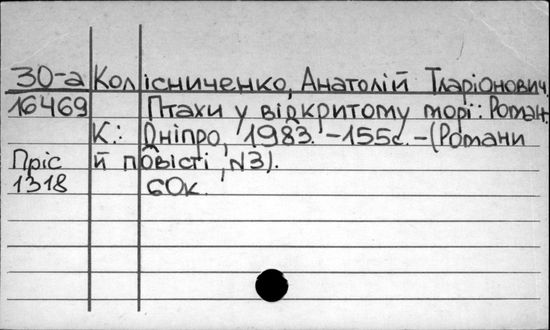 30-а Колісниченко, Анатолій Іларіонович.
16469 Птахи у відкритому морі: Роман.
К.: Дніпро, 1983. -155с. -(Романи
Пріс й повісті, N3).
1318 60к.